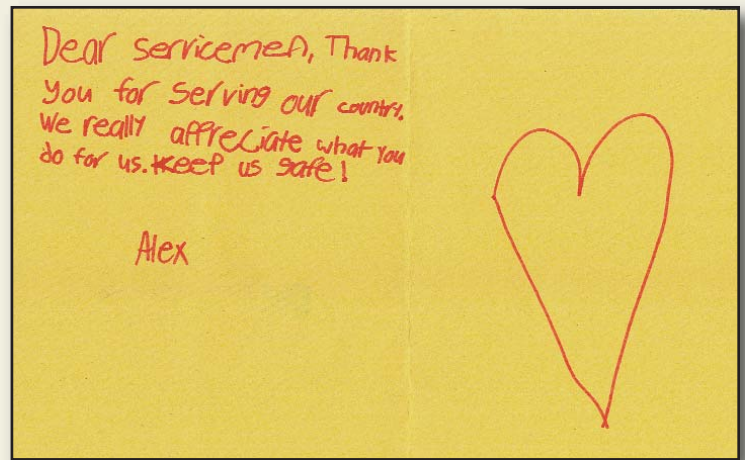 Dear servicemen, Thank
you for serving our country.
We really appreciate what you
do for us. Keep us safe!
Alex